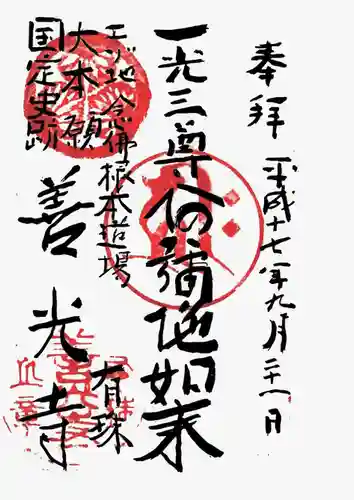 奉拝
平成十七年九月二十一日
一光三尊弥陀如来
エゾ地念佛根本道場
大本願
国定史跡
有珠
善光寺